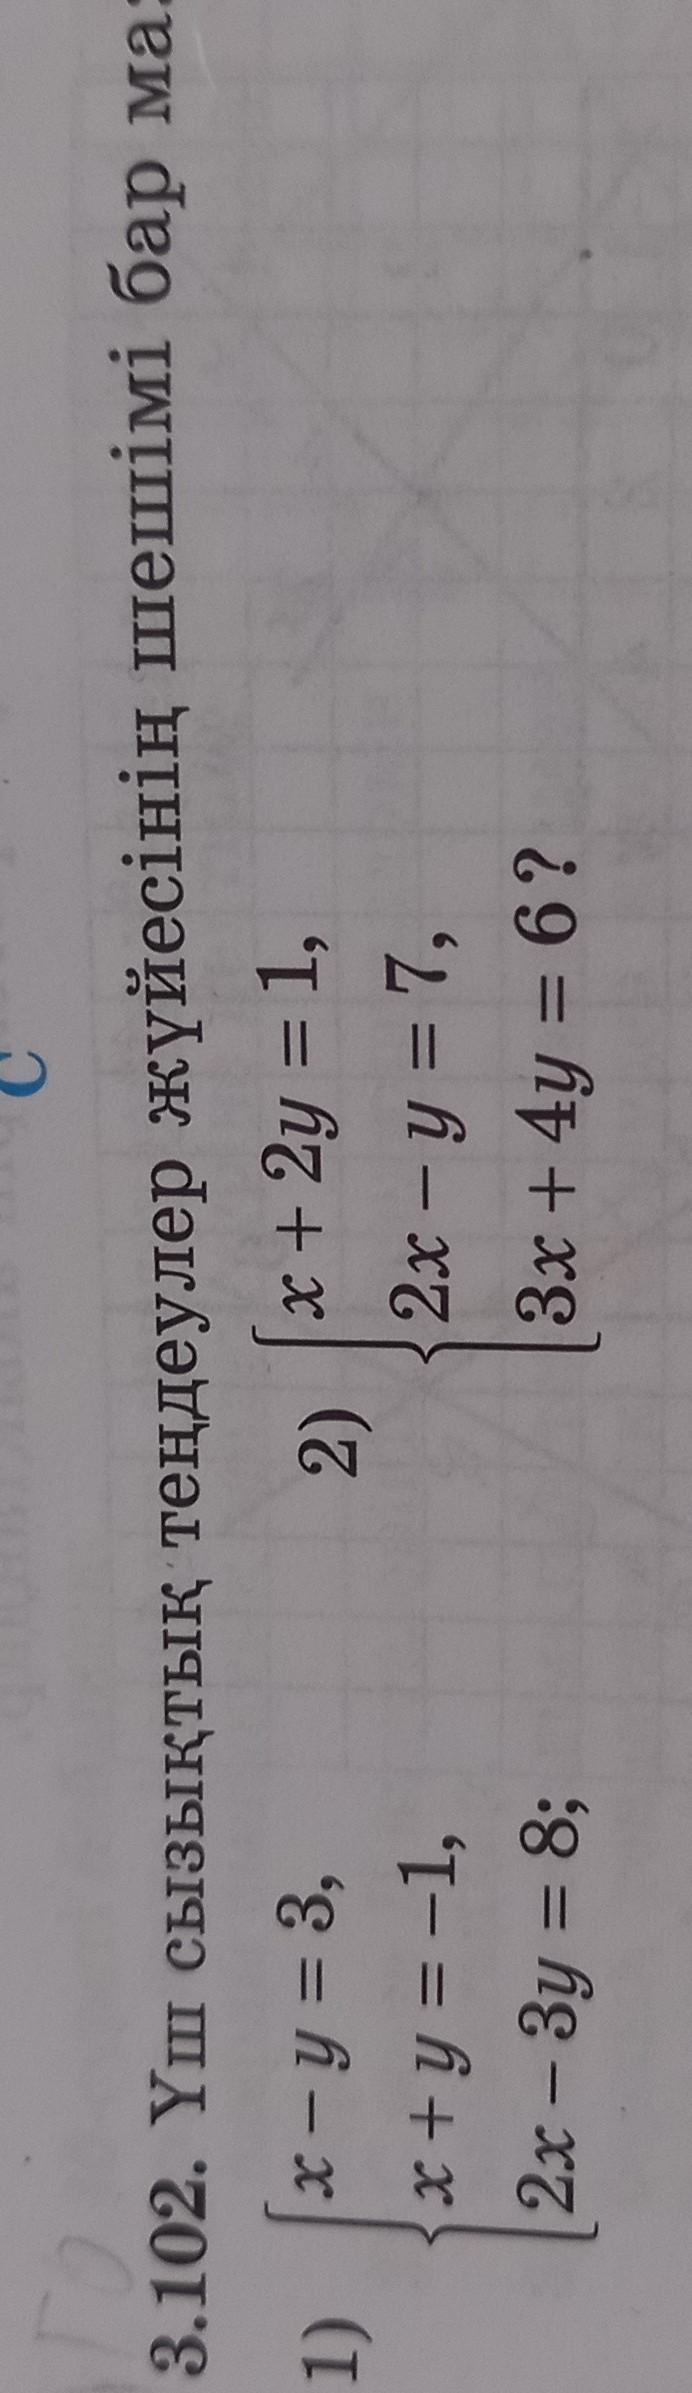 C
3.102. Үш сызықтық теңдеулер жүйесінің шешімі бар
1) { x − y = 3,
x + y = −1,
2x − 3y = 8;
2) { x + 2y = 1,
2x − y = 7,
3x + 4y = 6?